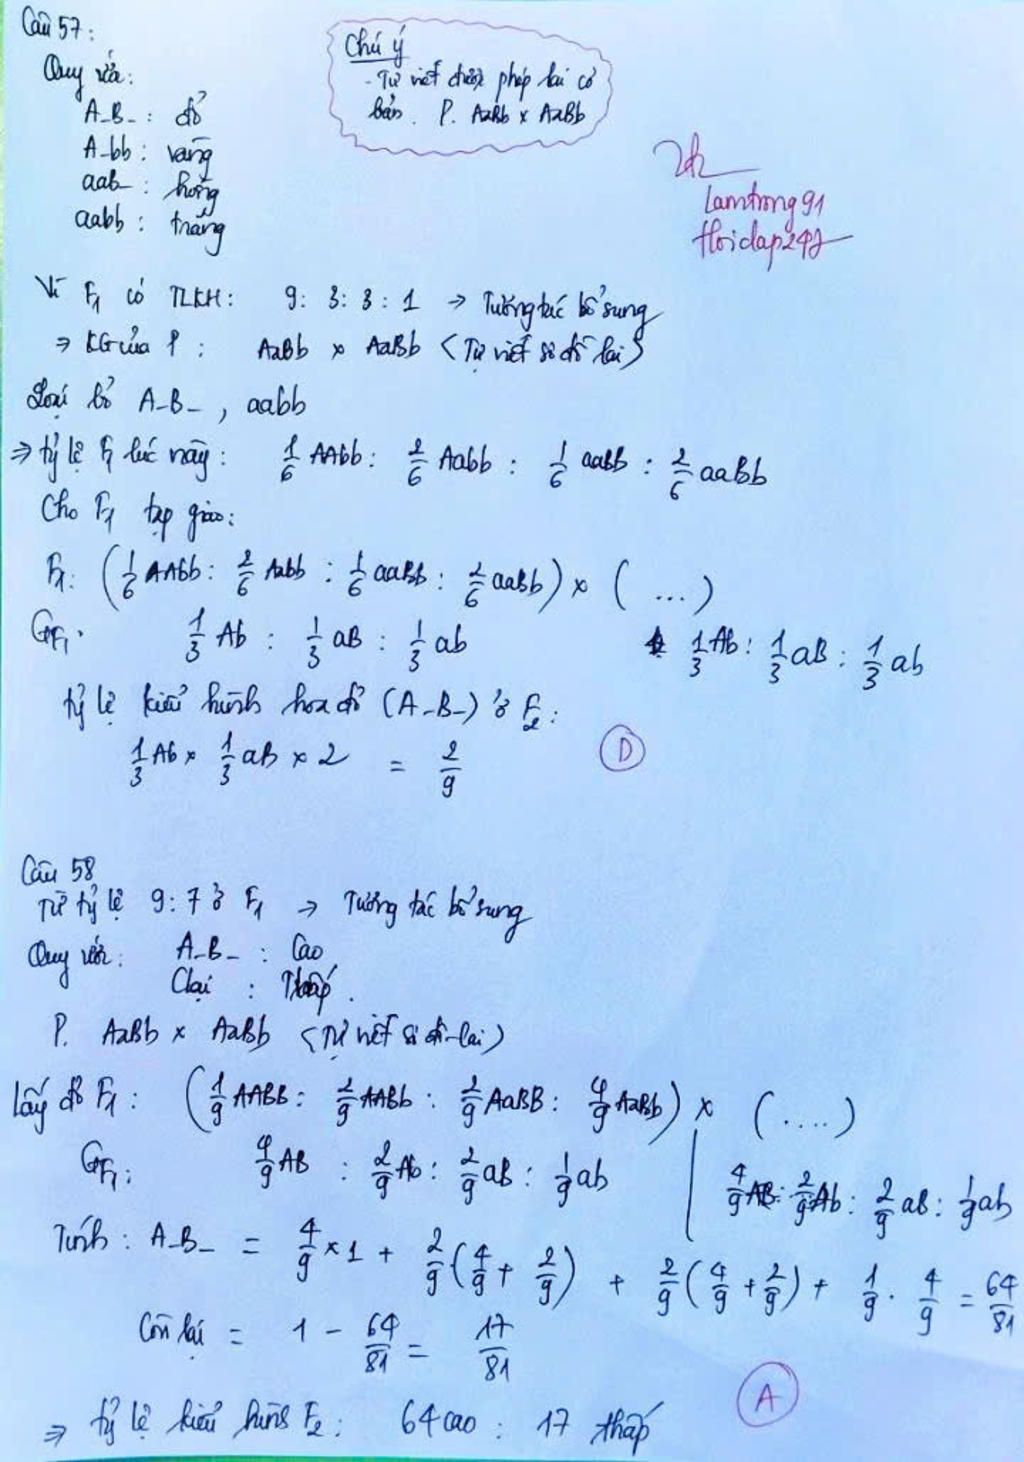 Câu 57:
Quy ước:
A-B- : đỏ
A-bb : vàng
aaB- : hồng
aabb : trắng
Chú ý
- Tự viết được phép lai cơ
bản. P. AaBb x AaBb
lamtrong91
Hoidap247
Vì F1 có TLKH: 9: 3: 3: 1 → Tương tác bổ sung
⇒ KG của P: AaBb x AaBb (Tự viết sơ đồ lai)
Loại bỏ A-B- , aabb
⇒ tỷ lệ F1 lúc này: 1/6 AAbb: 2/6 Aabb : 1/6 aaBB : 2/6 aaBb
Cho F1 tạp giao:
F1: (1/6 AAbb: 2/6 Aabb : 1/6 aaBB : 2/6 aaBb) x ( ...)
GF1: 1/3 Ab : 1/3 aB : 1/3 ab 1/3 Ab: 1/3 aB : 1/3 ab
tỷ lệ kiểu hình hoa đỏ (A-B-) ở F2:
1/3 Ab x 1/3 aB x 2 = 2/9
D
Câu 58
Từ tỷ lệ 9:7 ở F1 → Tương tác bổ sung
Quy ước: A-B- : Cao
Clại : Thấp.
P. AaBb x AaBb (Tự viết sơ đồ lai)
Lấy đỏ F1: (1/9 AABB: 2/9 AABb : 2/9 AaBB: 4/9 AaBb) x (....)
GF1: 4/9 AB : 2/9 Ab: 2/9 aB: 1/9 ab 4/9 AB: 2/9 Ab: 2/9 aB: 1/9 ab
Tính: A-B- = 4/9 x 1 + 2/9 (4/9 + 2/9) + 2/9 (4/9 + 2/9) + 1/9 . 4/9 = 64/81
Còn lại = 1 - 64/81 = 17/81
A
⇒ tỷ lệ kiểu hình F2: 64 cao : 17 thấp